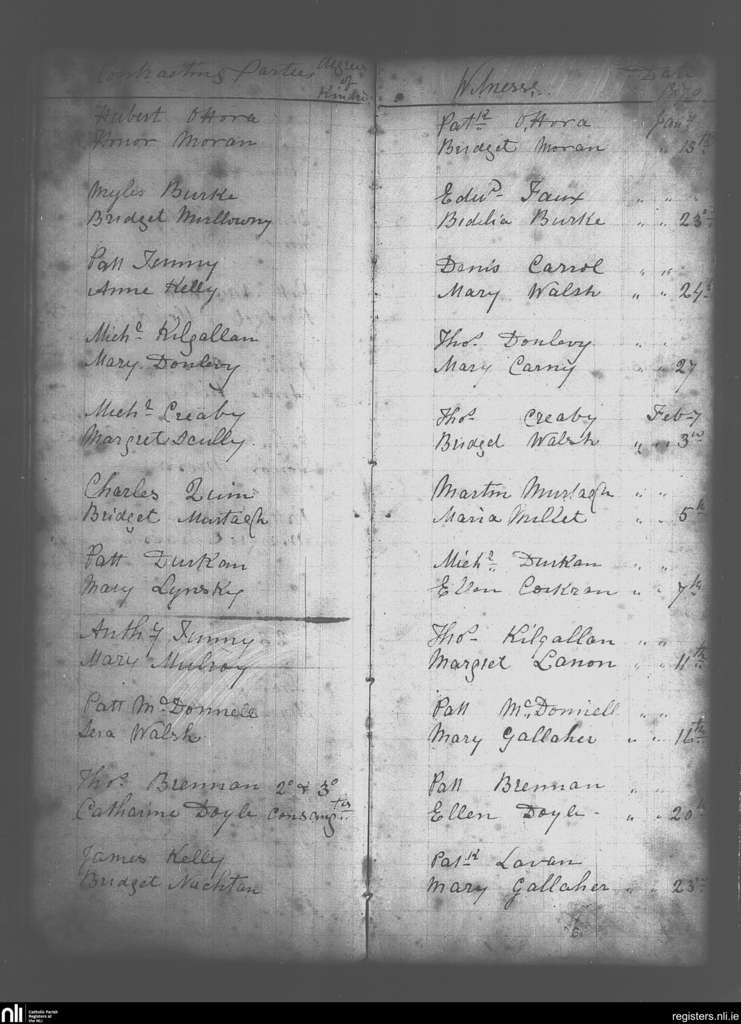 Contracting Parties Degree of Kindred Witnesses Date
Hubert OHora Patk O'Hora Jany
Honor Moran Bridget Moran " 13th
Myles Burke Edwd Faux " "
Bridget Mullowny Bidelia Burke " " 23d
Patt Jenny Denis Carrol " "
Anne Kelly Mary Walsh " " 24th
Michl Kilgallan Thos Donlevy " "
Mary Donlevy Mary Carny " " 27
Michl Creaby Thos Creaby Feby
Margret Scully. Bridget Walsh " " 3rd
Charles Quin Martin Murtagh " "
Bridget Murtagh Maria Millet " " 5th
Patt Durkan Michl Durkan " "
Mary Lynsky Ellen Corkran " " 7th
Anthy Jenny Thos Kilgallan " "
Mary Mulroy Margret Lanon " " 11th
Patt McDonnell Patt McDonnell " "
Walsh Mary Gallaher " " 16th
Thos Brennan 2o & 3o Patt Brennan " "
Catharine Doyle consangtis Ellen Doyle - " " 20th
James Kelly Patk Lavan
Bridget Nachtan Mary Gallaher " " 23rd
nli Catholic Parish Registers at the NLI registers.nli.ie